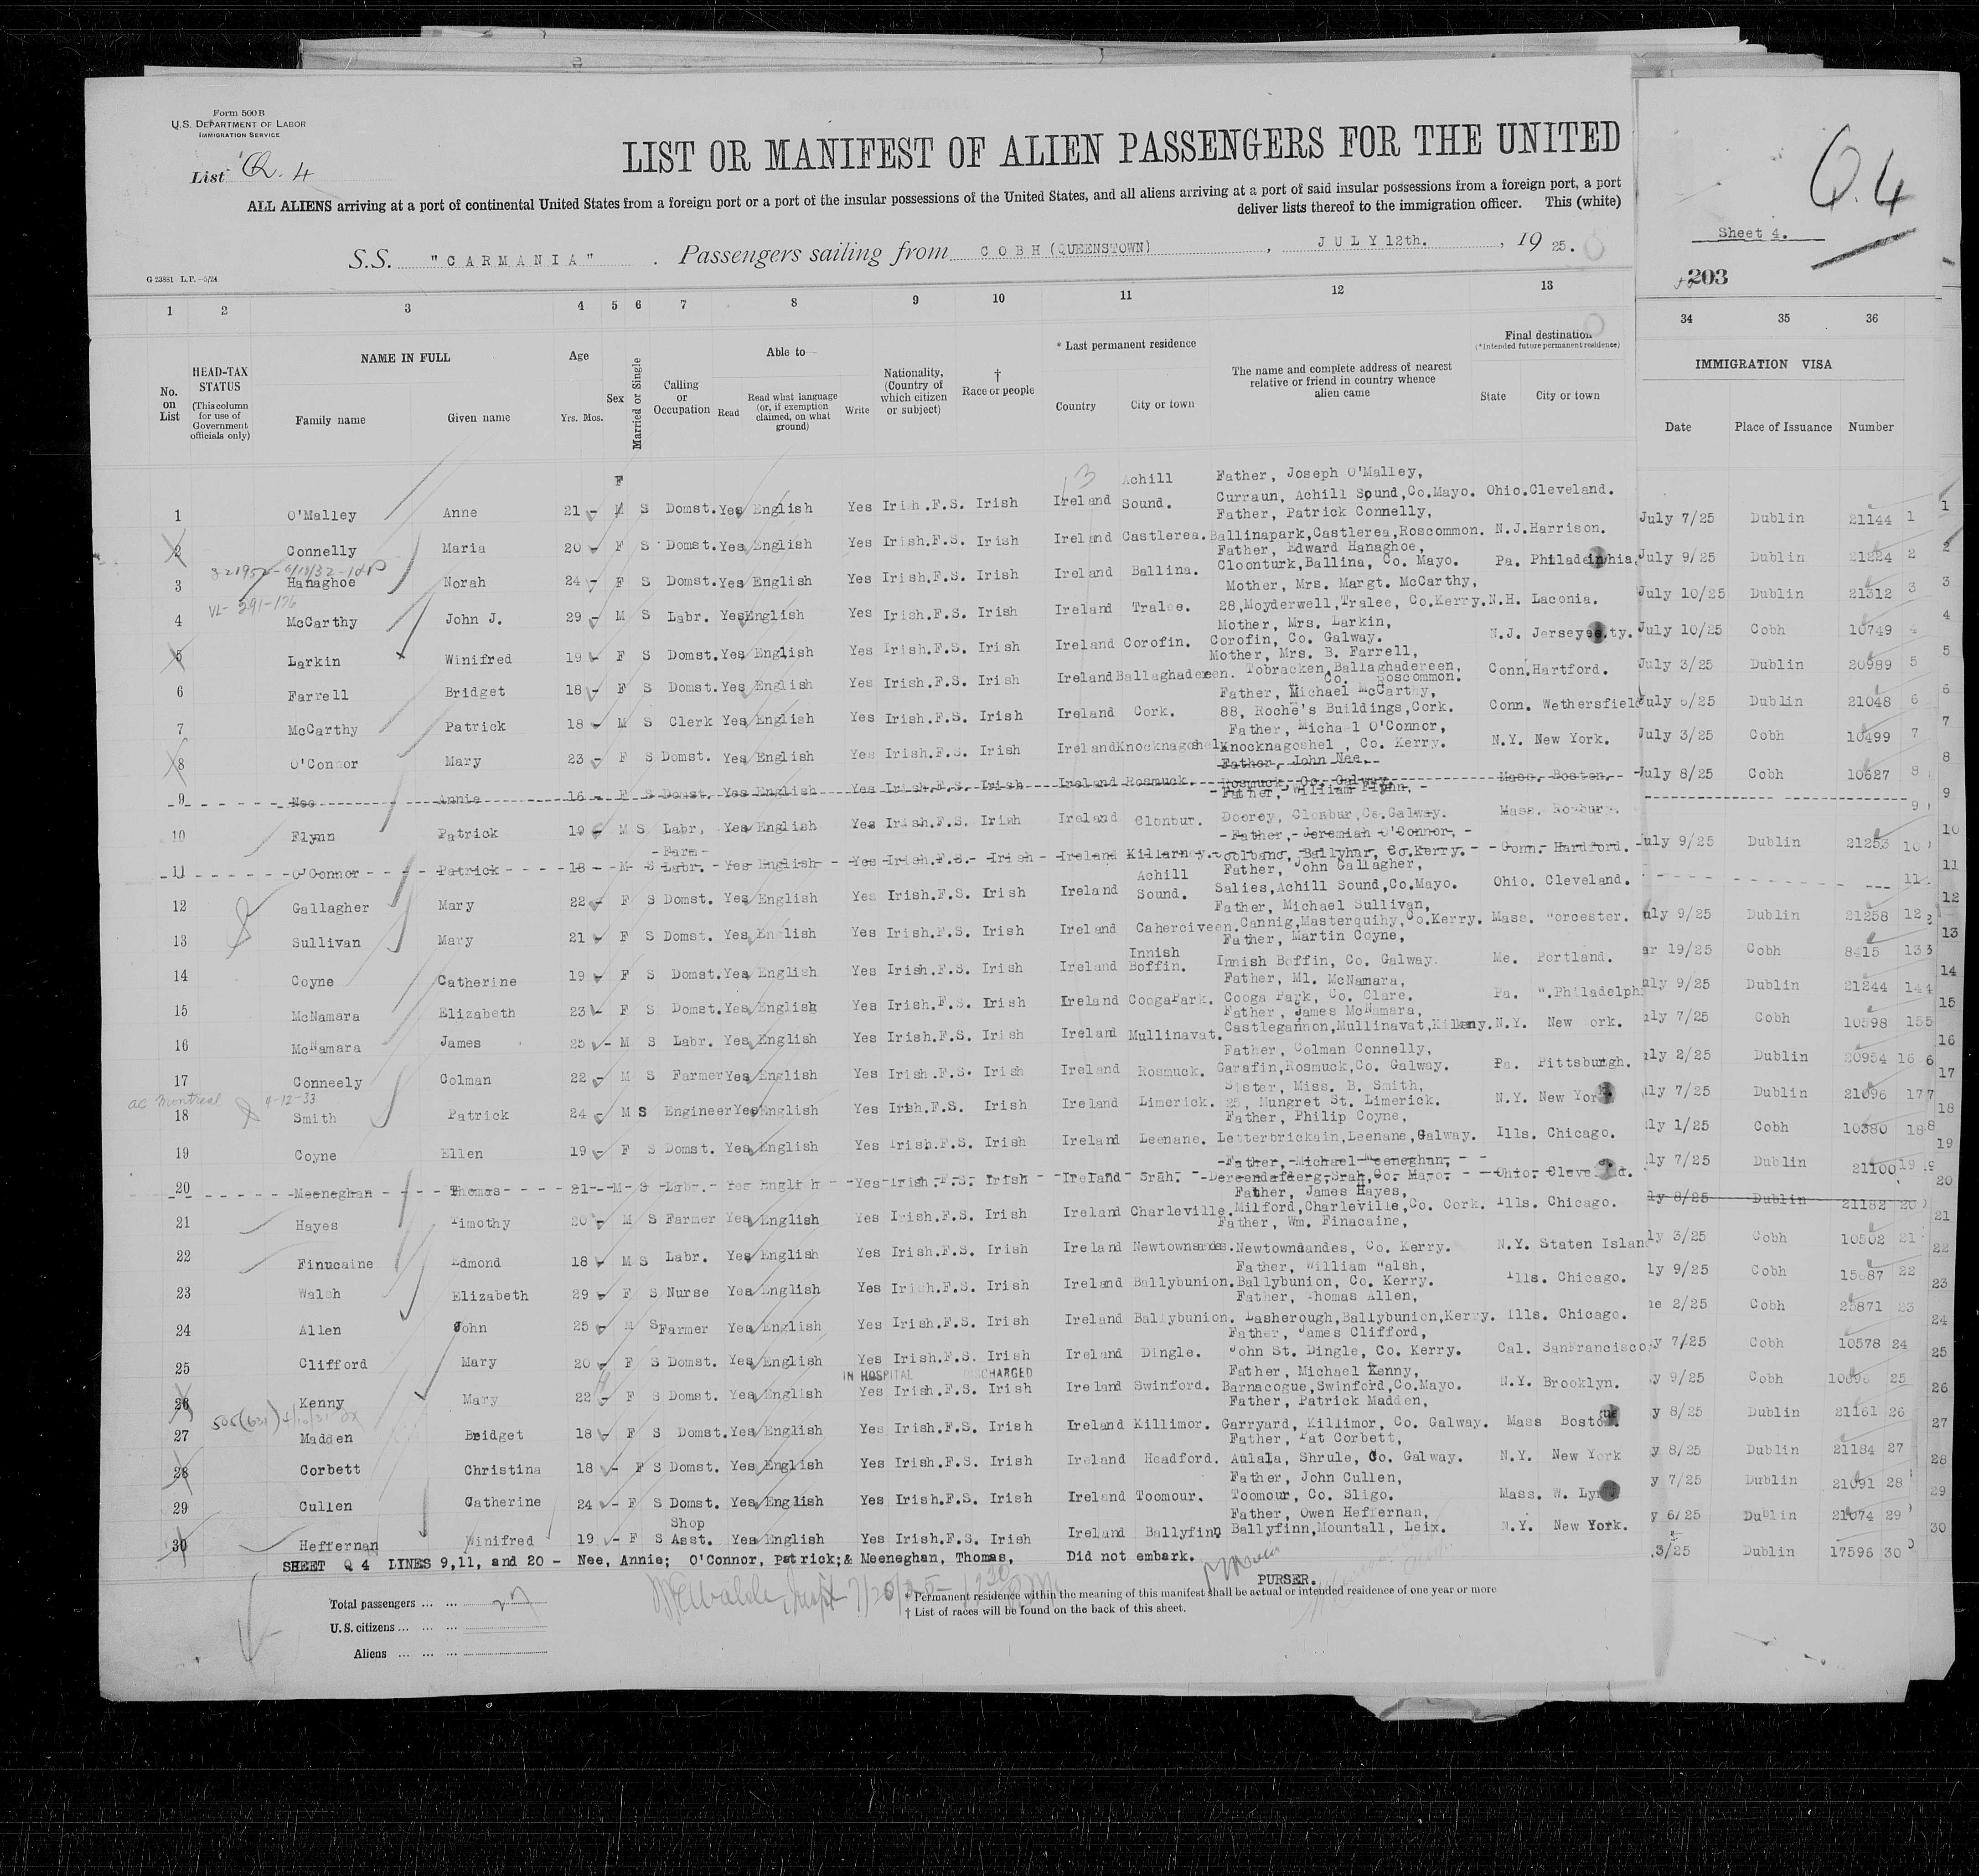 Form 500 B
U.S. DEPARTMENT OF LABOR
IMMIGRATION SERVICE
List Q. 4
LIST OR MANIFEST OF ALIEN PASSENGERS FOR THE UNITED
ALL ALIENS arriving at a port of continental United States from a foreign port or a port of the insular possessions of the United States, and all aliens arriving at a port of said insular possessions from a foreign port, a port
deliver lists thereof to the immigration officer. This (white)
S.S. "CARMANIA" . Passengers sailing from COBH (QUEENSTOWN) , JULY 12th. , 19 25.
G 23881 L.P.—5/24
Q.4
Sheet 4.
203
1 2 3 4 5 6 7 8 9 10 11 12 13 34 35 36
No. on List
HEAD-TAX STATUS (This column for use of Government officials only)
NAME IN FULL
Family name Given name
Age Yrs. Mos.
Sex
Married or Single
Calling or Occupation
Able to
Read Read what language (or, if exemption claimed, on what ground) Write
Nationality, (Country of which citizen or subject)
† Race or people
* Last permanent residence
Country City or town
The name and complete address of nearest relative or friend in country whence alien came
Final destination (*intended future permanent residence)
State City or town
IMMIGRATION VISA
Date Place of Issuance Number
1 O'Malley Anne 21 F M S Domst. Yes English Yes Irih.F.S. Irish Ireland Achill Sound. Father, Joseph O'Malley, Curraun, Achill Sound,Co.Mayo. Ohio.Cleveland. July 7/25 Dublin 21144 1
2 Connelly Maria 20 F S Domst. Yes English Yes Irish.F.S. Irish Ireland Castlerea. Father, Patrick Connelly, Ballinapark,Castlerea,Roscommon. N.J.Harrison. July 9/25 Dublin 21224 2
3 Hanaghoe Norah 24 F S Domst. Yes English Yes Irish.F.S. Irish Ireland Ballina. Father, Edward Hanaghoe, Cloonturk,Ballina, Co. Mayo. Pa. Philadelphia. July 10/25 Dublin 21312 3
4 McCarthy John J. 29 M S Labr. Yes English Yes Irish.F.S. Irish Ireland Tralee. Mother, Mrs. Margt. McCarthy, 28,Moyderwell,Tralee, Co.Kerry. N.H. Laconia. July 10/25 Cobh 10749 4
5 Larkin Winifred 19 F S Domst. Yes English Yes Irish.F.S. Irish Ireland Corofin. Mother, Mrs. Larkin, Corofin, Co. Galway. N.J. July 3/25 Dublin 20989 5
6 Farrell Bridget 18 F S Domst. Yes English Yes Irish.F.S. Irish Ireland Ballaghadereen. Mother, Mrs. B. Farrell, Tobracken,Ballaghadereen, Co. Roscommon. Conn.Hartford. Dublin 21048 6
7 McCarthy Patrick 18 M S Clerk Yes English Yes Irish.F.S. Irish Ireland Cork. Father, Michael McCarthy, 88, Roche's Buildings,Cork. Conn. Wethersfield July 3/25 Cobh 10499 7
8 O'Connor Mary 23 F S Domst. Yes English Yes Irish.F.S. Irish Ireland Knocknagoshel Father, Michael O'Connor, Knocknagoshel , Co. Kerry. N.Y. New York. July 8/25 Cobh 10627 8
9 Nee Annie 16 F S Domst. Yes English Yes Irish.F.S. Irish Ireland Rosmuck. Father, John Nee, Rosmuck, Co. Galway. Mass. Boston. 9
10 Flynn Patrick 19 M S Labr, Yes English Yes Irish.F.S. Irish Ireland Clonbur. Father, William Flynn, Doorey, Clonbur,Co.Galway. Mass. Roxbury. July 9/25 Dublin 21253 10
11 O'Connor Patrick 18 M S Farm Labr. Yes English Yes Irish.F.S. Irish Ireland Killarney. Father, Jeremiah O'Connor, Ballyhar, Co.Kerry. Conn. Hardford. 11
12 Gallagher Mary 22 F S Domst. Yes English Yes Irish.F.S. Irish Ireland Achill Sound. Father, John Gallagher, Salies,Achill Sound,Co.Mayo. Ohio. Cleveland. uly 9/25 Dublin 21258 12
13 Sullivan Mary 21 F S Domst. Yes English Yes Irish.F.S. Irish Ireland Caherciveen. Father, Michael Sullivan, Cannig,Masterquihy,Co.Kerry. Mass. Worcester. ar 19/25 Cobh 8415 13
14 Coyne Catherine 19 F S Domst. Yes English Yes Irish.F.S. Irish Ireland Innish Boffin. Father, Martin Coyne, Innish Boffin, Co. Galway. Me. Portland. uly 9/25 Dublin 21244 14
15 McNamara Elizabeth 23 F S Domst. Yes English Yes Irish.F.S. Irish Ireland CoogaPark. Father, Ml. McNamara, Cooga Park, Co. Clare. Pa. W.Philadelph uly 7/25 Cobh 10598 15
16 McNamara James 25 M S Labr. Yes English Yes Irish.F.S. Irish Ireland Mullinavat. Father, James McNamara, Castlegannon,Mullinavat, N.Y. New York. uly 2/25 Dublin 20954 16
17 Conneely Colman 22 M S Farmer Yes English Yes Irish.F.S. Irish Ireland Rosmuck. Father, Colman Connelly, Garafin,Rosmuck,Co. Galway. Pa. Pittsburgh. uly 7/25 Dublin 21096 17
18 Smith Patrick 24 M S Engineer Yes English Yes Irish.F.S. Irish Ireland Limerick. Sister, Miss. B. Smith, 25, Mungret St. Limerick. N.Y. New York uly 1/25 Cobh 10380 18
19 Coyne Ellen 19 F S Domst. Yes English Yes Irish.F.S. Irish Ireland Leenane. Father, Philip Coyne, Letterbrickain,Leenane,Galway. Ills. Chicago. uly 7/25 Dublin 21100 19
20 Meeneghan Thomas 21 M S Labr. Yes English Yes Irish.F.S. Irish Ireland Srah. Father, Michael Meeneghan, Srah,Co. Mayo. Ohio. Cleveland. uly 8/25 Dublin 21182 20
21 Hayes Timothy 20 M S Farmer Yes English Yes Irish.F.S. Irish Ireland Charleville. Father, James Hayes, Milford,Charleville,Co. Cork. Ills. Chicago. ly 3/25 Cobh 10502 21
22 Finucaine Edmond 18 M S Labr. Yes English Yes Irish.F.S. Irish Ireland Newtownsandes. Father, Wm. Finacaine, Newtownsandes, Co. Kerry. N.Y. Staten Islan ly 9/25 Cobh 22
23 Walsh Elizabeth 29 F S Nurse Yes English Yes Irish.F.S. Irish Ireland Ballybunion. Father, William Walsh, Ballybunion, Co. Kerry. Ills. Chicago. ne 2/25 Cobh 25871 23
24 Allen John 25 M S Farmer Yes English Yes Irish.F.S. Irish Ireland Ballybunion. Father, Thomas Allen, Lasherough,Ballybunion,Kerry. Ills. Chicago. y 7/25 Cobh 10578 24
25 Clifford Mary 20 F S Domst. Yes English Yes Irish.F.S. Irish Ireland Dingle. Father, James Clifford, John St. Dingle, Co. Kerry. Cal. SanFrancisco y 9/25 Cobh 25
IN HOSPITAL DISCHARGED
26 Kenny Mary 22 F S Domst. Yes English Yes Irish.F.S. Irish Ireland Swinford. Father, Michael Kenny, Barnacogue,Swinford,Co.Mayo. N.Y. Brooklyn. y 8/25 Dublin 21161 26
27 Madden Bridget 18 F S Domst. Yes English Yes Irish.F.S. Irish Ireland Killimor. Father, Patrick Madden, Garryard, Killimor, Co. Galway. Mass Boston y 8/25 Dublin 21184 27
28 Corbett Christina 18 F S Domst. Yes English Yes Irish.F.S. Irish Ireland Headford. Father, Pat Corbett, Aulala, Shrule, Co. Galway. N.Y. New York y 7/25 Dublin 21091 28
29 Cullen Catherine 24 F S Domst. Yes English Yes Irish.F.S. Irish Ireland Toomour. Father, John Cullen, Toomour, Co. Sligo. Mass. W. Lynn y 6/25 Dublin 21074 29
30 Heffernan Winifred 19 F S Shop Asst. Yes English Yes Irish.F.S. Irish Ireland Ballyfinn Father, Owen Heffernan, Ballyfinn,Mountall, Leix. N.Y. New York. 3/25 Dublin 17596 30
SHEET Q 4 LINES 9,11, and 20 - Nee, Annie; O'Connor, Patrick;& Meeneghan, Thomas, Did not embark.
PURSER.
Total passengers ... ... 27
U.S. citizens ... ... ...
Aliens ... ... ...
* Permanent residence within the meaning of this manifest shall be actual or intended residence of one year or more
† List of races will be found on the back of this sheet.